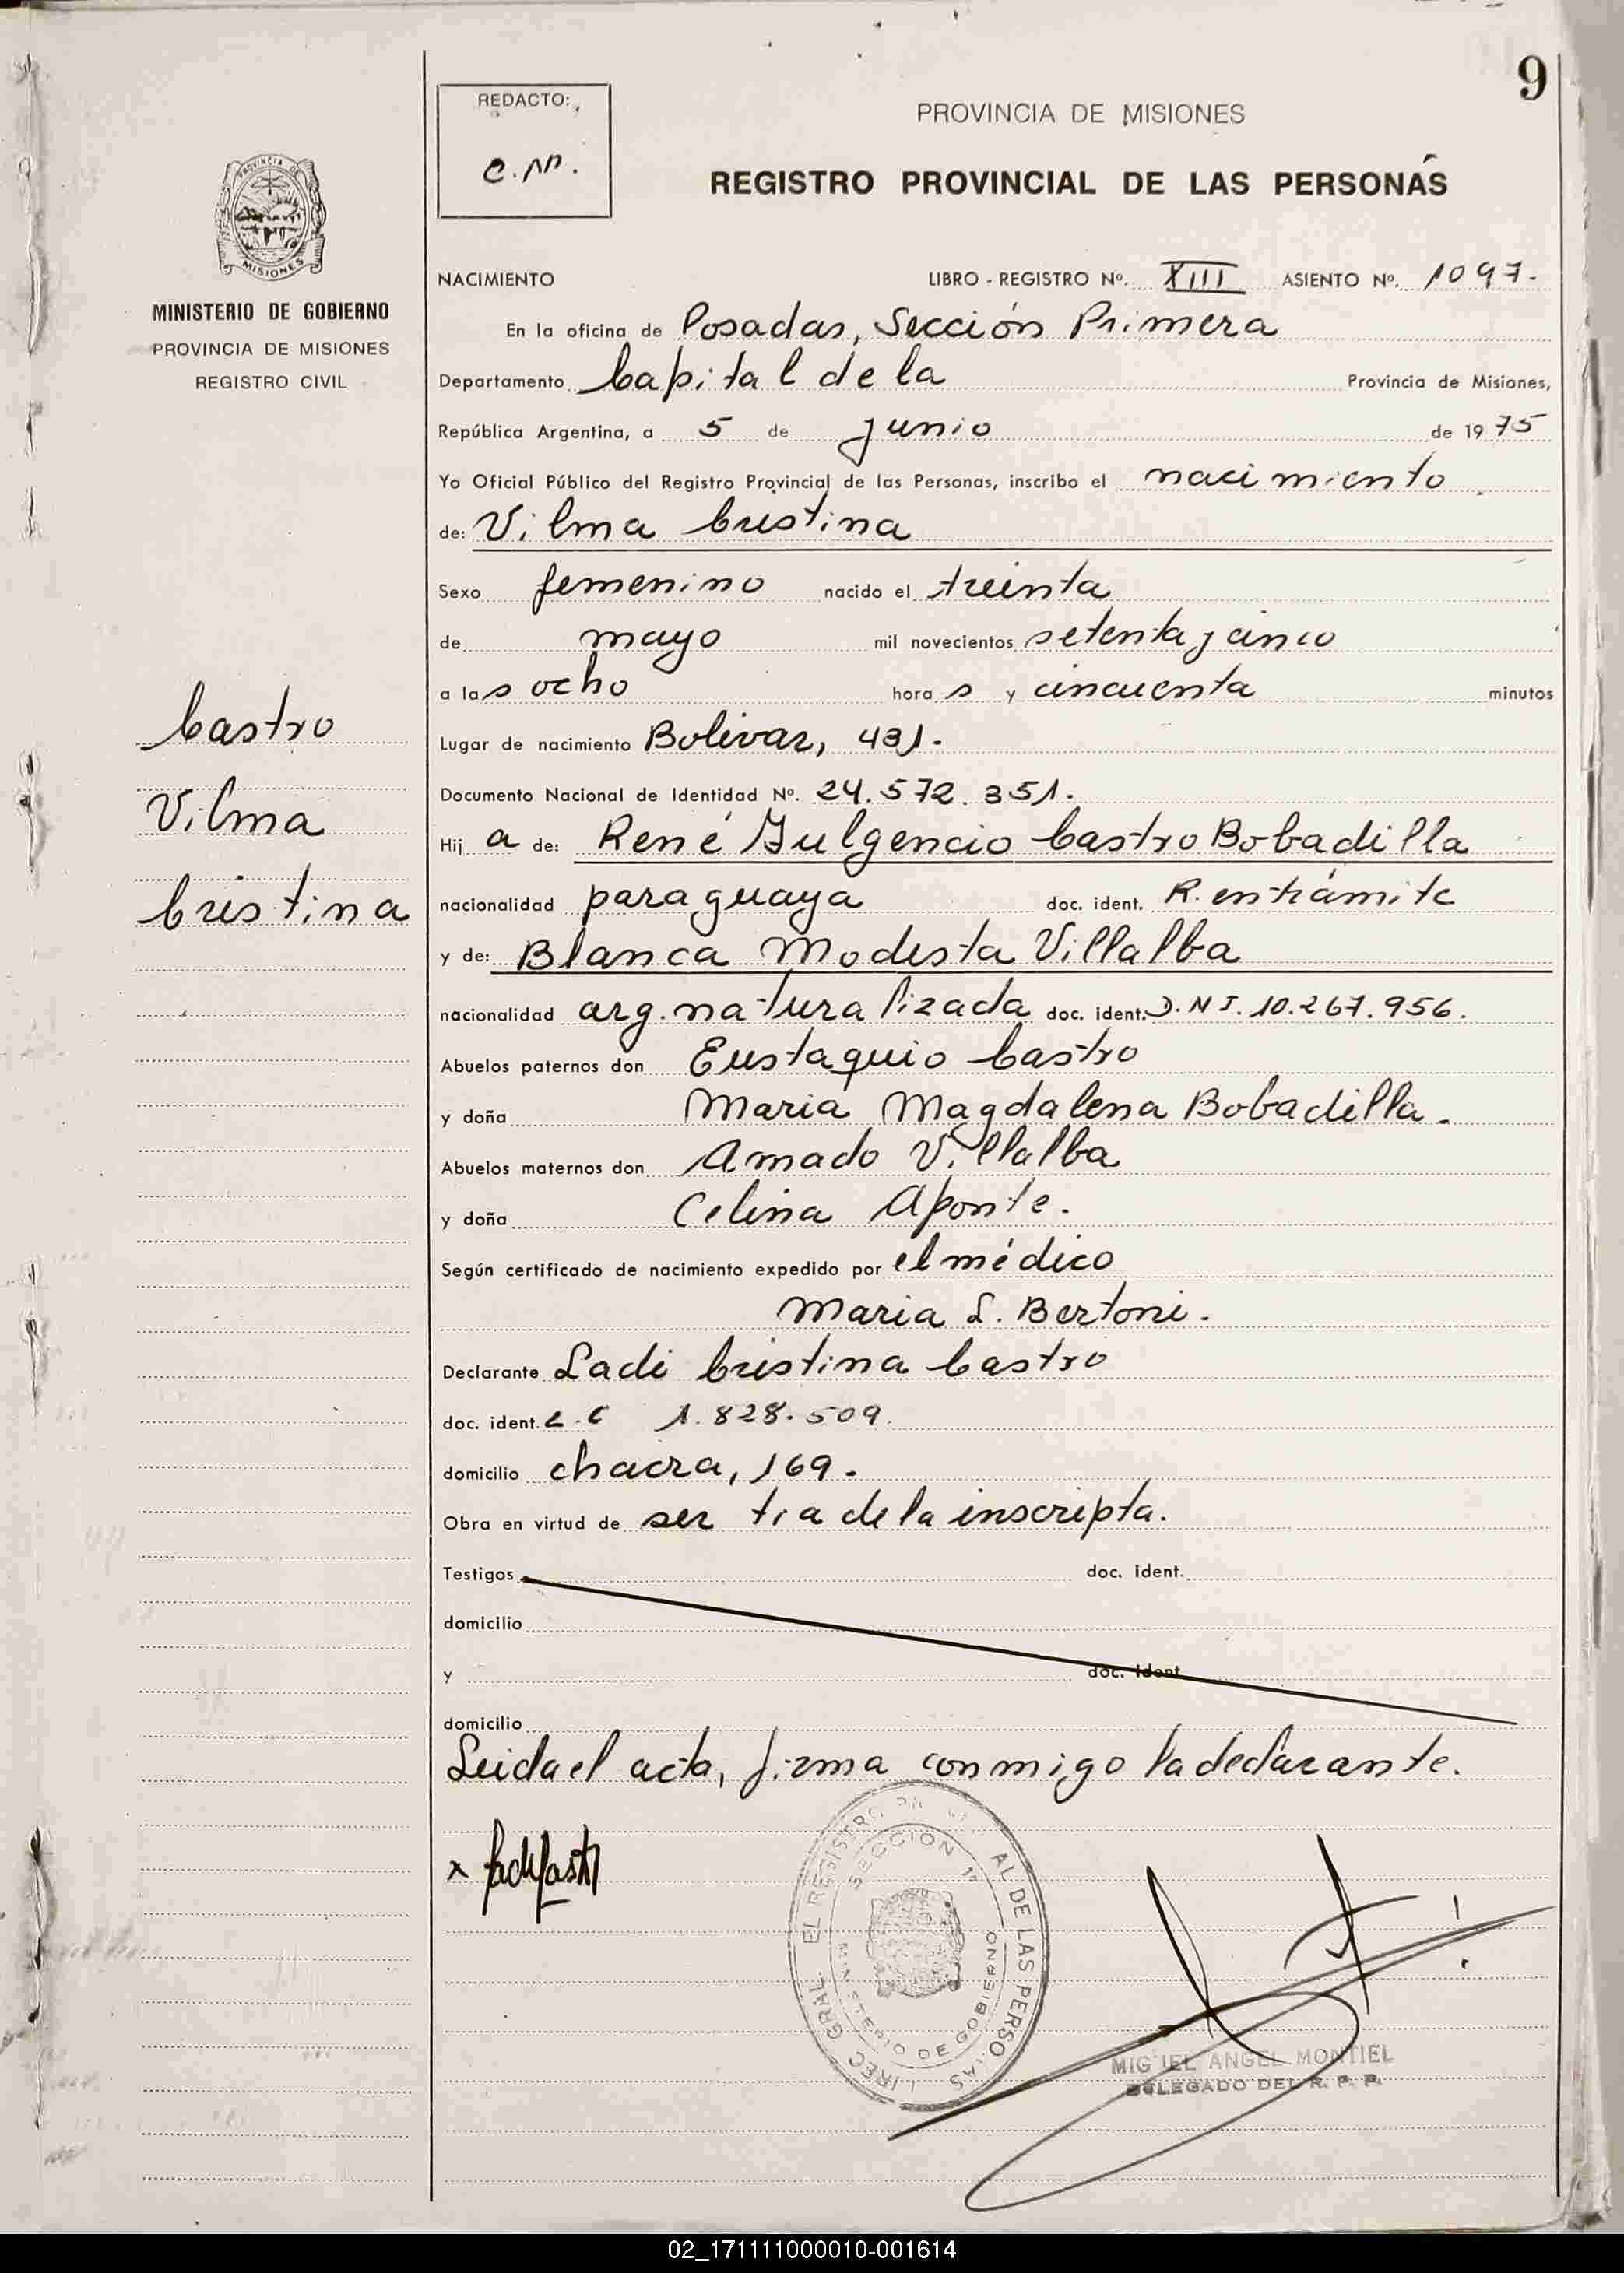 9
REDACTO:
C.M.
PROVINCIA DE MISIONES
REGISTRO PROVINCIAL DE LAS PERSONAS
PROVINCIA DE
MISIONES
MINISTERIO DE GOBIERNO
PROVINCIA DE MISIONES
REGISTRO CIVIL
NACIMIENTO LIBRO - REGISTRO Nº. XIII ASIENTO Nº. 1097.
En la oficina de Posadas, Sección Primera
Departamento Capital de la Provincia de Misiones,
República Argentina, a 5 de junio de 1975
Yo Oficial Público del Registro Provincial de las Personas, inscribo el nacimiento
de: Vilma Cristina
Sexo femenino nacido el treinta
de mayo mil novecientos setenta y cinco
a las ocho horas y cincuenta minutos
Lugar de nacimiento Bolivar, 431.
Documento Nacional de Identidad Nº. 24.572.351.
Hija de: René Fulgencio Castro Bobadilla
nacionalidad paraguaya doc. ident. R. en trámite
y de: Blanca Modesta Villalba
nacionalidad arg. naturalizada doc. ident. D.N.I. 10.267.956.
Abuelos paternos don Eustaquio Castro
y doña Maria Magdalena Bobadilla.
Abuelos maternos don Amado Villalba
y doña Celina Aponte.
Según certificado de nacimiento expedido por el médico
Maria L. Bertoni.
Declarante Ladi Cristina Castro
doc. ident. L.C 1.828.509.
domicilio chacra, 169.
Obra en virtud de ser tia de la inscripta.
Testigos doc. ident.
domicilio
y doc. ident
domicilio
Leida el acta, firma conmigo la declarante.
Castro
Vilma
Cristina
x
SECCION 1ª
MINISTERIO DE GOBIERNO
MIGUEL ANGEL MONTIEL
DELEGADO DEL R. P. P.
02_171111000010-001614